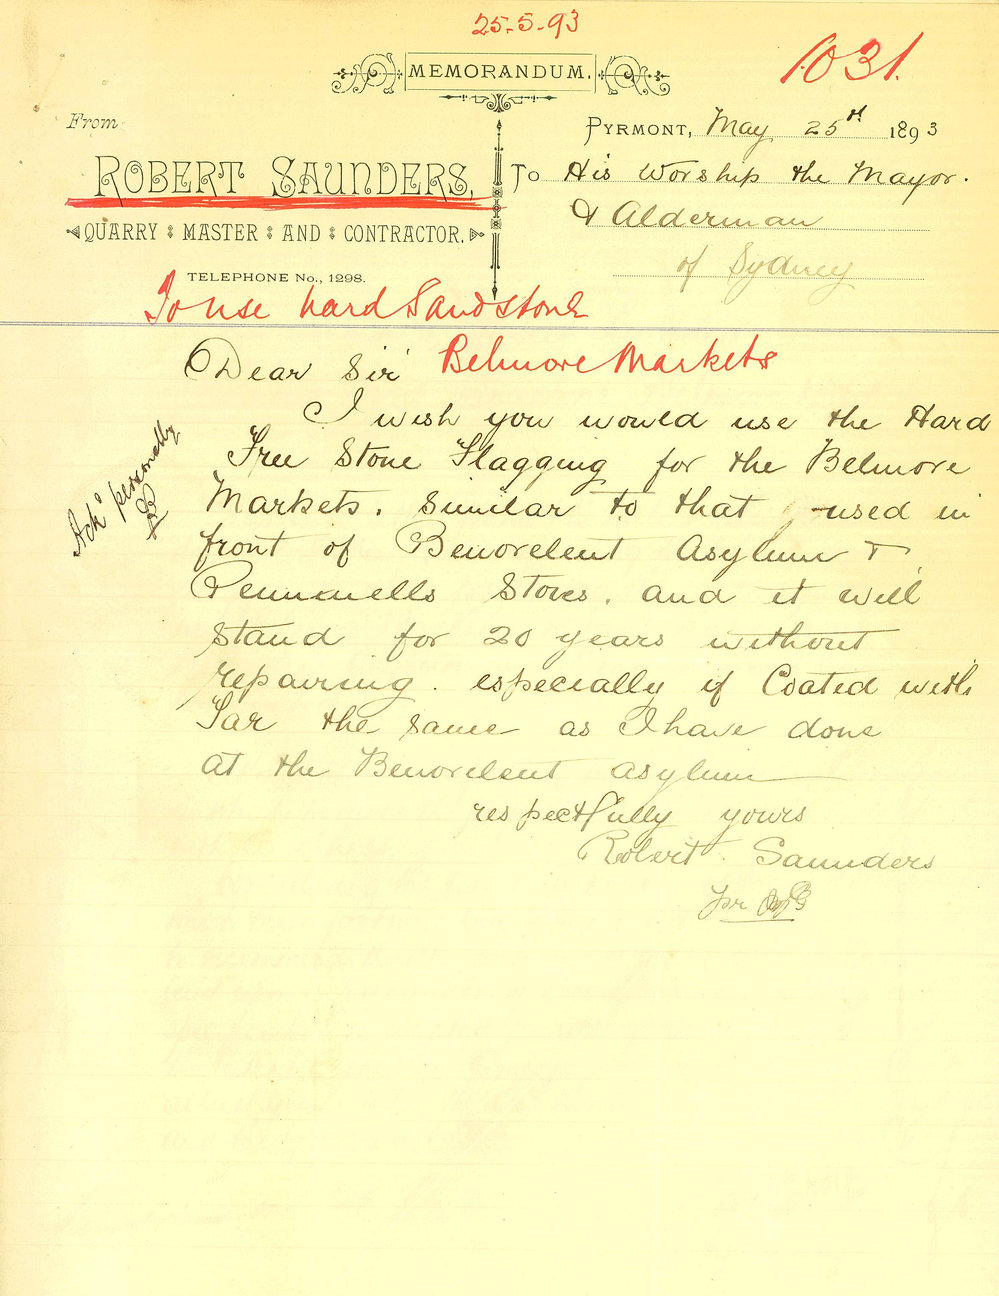 25-5-93
1031.
MEMORANDUM.
From
PYRMONT, May 25th 1893
ROBERT SAUNDERS,
To His Worship the Mayor.
& Alderman
QUARRY MASTER AND CONTRACTOR.
of Sydney
TELEPHONE No., 1298.
To use hard Sandstone
Belmore Markets
Dear Sir
I wish you would use the Hard
Free Stone Flagging for the Belmore
Markets. Similar to that used in
front of Benovelent Asylum &
Stores. and it will
stand for 20 years without
repairing. especially if Coated with
Tar the same as I have done
at the Benovelent asylum
respectfully yours
Robert Saunders
pr
Ackd personally